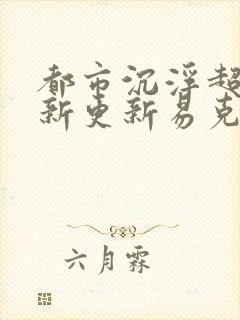 都市沉浮超
新更新易克
六月霖